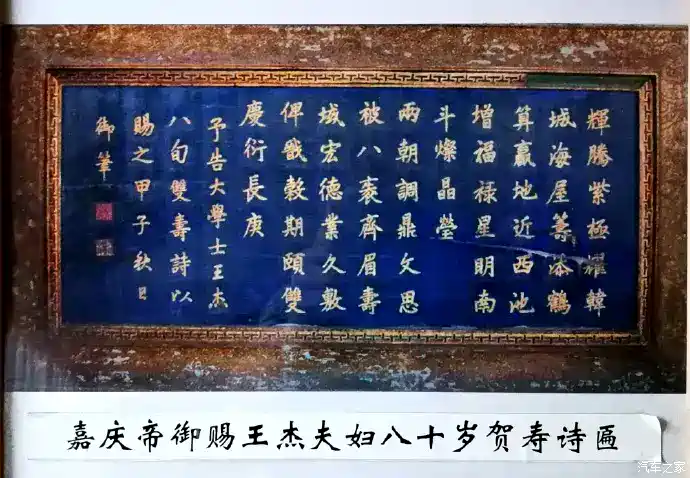 輝騰紫極耀韓
城海屋籌添鶴
算贏地近西池
增福禄星明南
斗燦晶瑩
兩朝調鼎文思
被八袠齊眉壽
域宏德業久敷
俾戩穀期頤雙
慶衍長庚
予告大學士王杰
八旬雙壽詩以
賜之甲子秋日
御筆
嘉庆帝御赐王杰夫妇八十岁贺寿诗匾
汽车之家